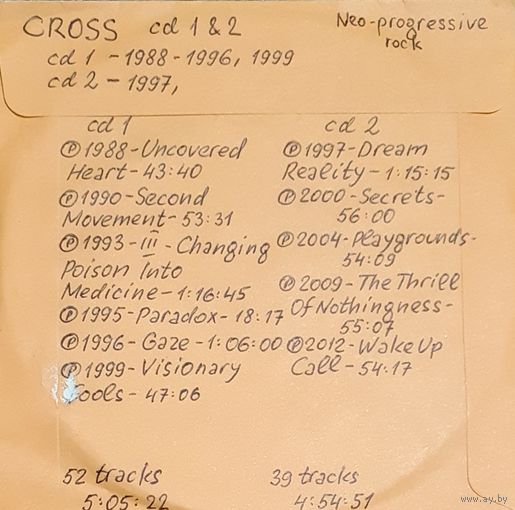 CROSS cd 1 & 2
Neo-progressive
rock
cd 1 - 1988-1996, 1999
cd 2 - 1997,
cd 1
Ⓟ1988-Uncovered
Heart - 43:40
Ⓟ1990-Second
Movement - 53:31
Ⓟ1993 - III - Changing
Poison Into
Medicine - 1:16:45
Ⓟ1995-Paradox - 18:17
Ⓟ1996-Gaze - 1:06:00
Ⓟ1999-Visionary
Fools - 47:06
52 tracks
5:05:22
cd 2
Ⓟ1997-Dream
Reality - 1:15:15
Ⓟ2000-Secrets-
56:00
Ⓟ2004-Playgrounds-
54:09
Ⓟ2009-The Thrill
Of Nothingness-
55:07
Ⓟ2012-Wake Up
Call - 54:17
39 tracks
4:54:51
www.ay.by